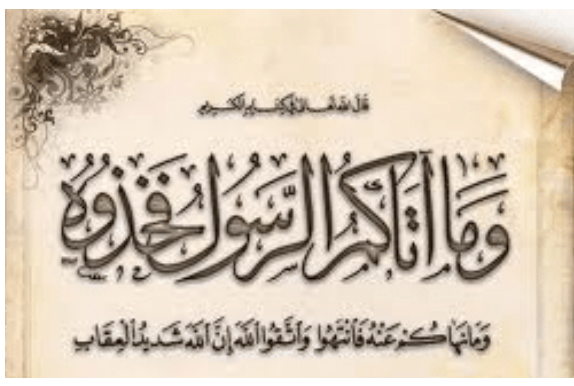 قال الله تعالى في كتابه الكريم
وَمَا آتَاكُمُ الرَّسُولُ فَخُذُوهُ
وَمَا نَهَاكُمْ عَنْهُ فَانْتَهُوا وَاتَّقُوا اللَّهَ إِنَّ اللَّهَ شَدِيدُ الْعِقَابِ